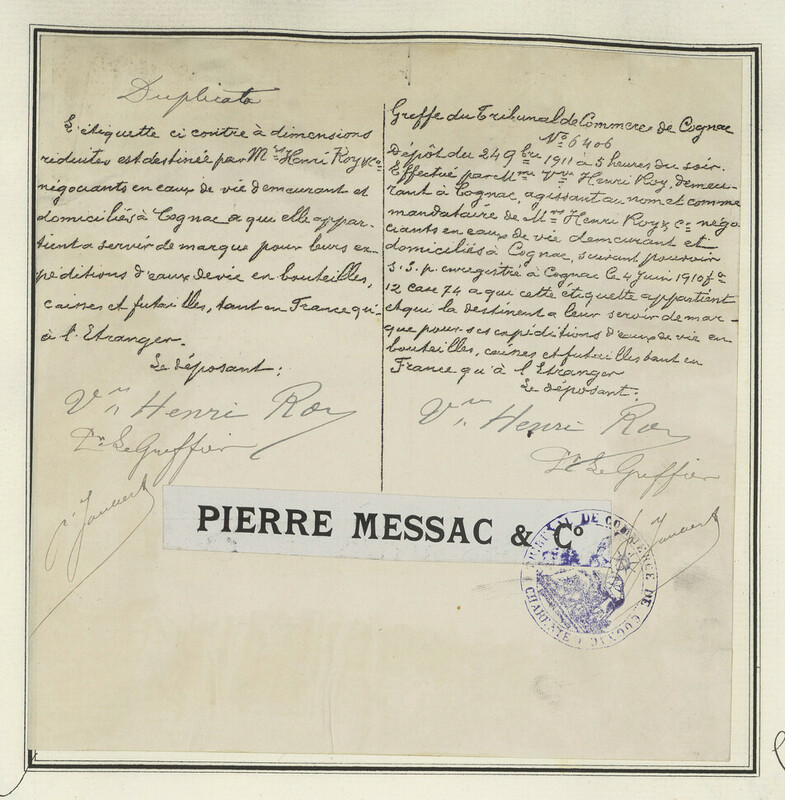 Duplicata
L'étiquette ci contre à dimensions
reduites est destinée par Mrs Henri Roy & Co
négociants en eaux de vie demeurant et
domiciliés à Cognac a qui elle appar-
tient a servir de marque pour leurs ex-
péditions d'eaux de vie en bouteilles,
caisses et futailles, tant en France qu'
à l'Etranger.
Le déposant:
Vve Henri Roy
Pr Le Greffier
Greffe du Tribunal de Commerce de Cognac
No 6406
Dépôt du 24 9bre 1911 à 5 heures du soir.
Effectué par Mme Vve Henri Roy, demeu-
rant à Cognac, agissant au nom et comme
mandataire de Mrs Henri Roy & Co négo-
ciants en eaux de vie demeurant et
domiciliés à Cognac, suivant pouvoir
S.S.p. enregistré à Cognac le 4 Juin 1910 fo
12 case 74 a qui cette étiquette appartient
et qui la destinent a leur servir de mar-
que pour ses expéditions d'eaux de vie en
bouteilles, caisses et futailles tant en
France qu'à l'Etranger
Le déposant:
Vve Henri Roy
Pr Le Greffier
PIERRE MESSAC & Co
TRIBUNAL DE COMMERCE DE COGNAC
CHARENTE